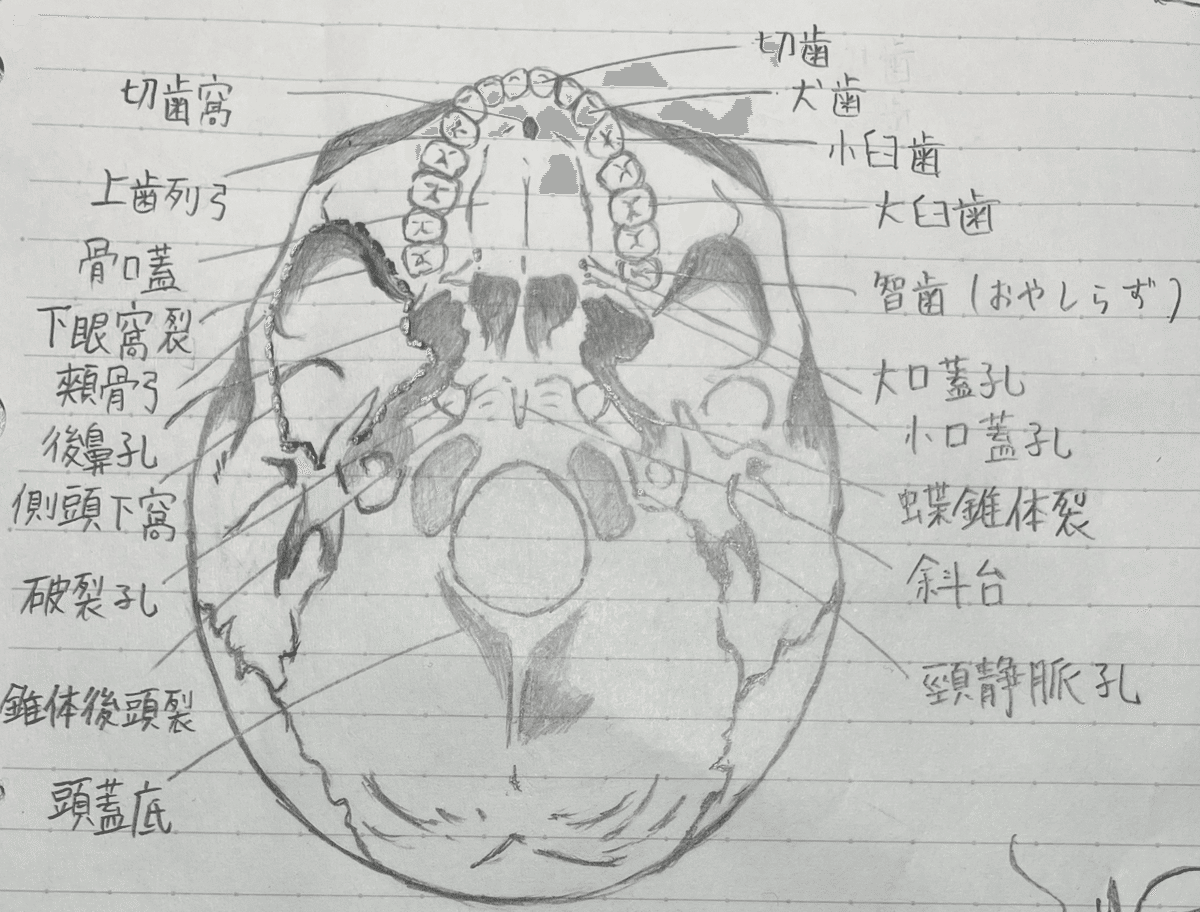 切歯窩
上歯列弓
骨口蓋
下眼窩裂
頬骨弓
後鼻孔
側頭下窩
破裂孔
錐体後頭裂
頭蓋底
切歯
犬歯
小臼歯
大臼歯
智歯(おやしらず)
大口蓋孔
小口蓋孔
蝶錐体裂
斜台
頸静脈孔